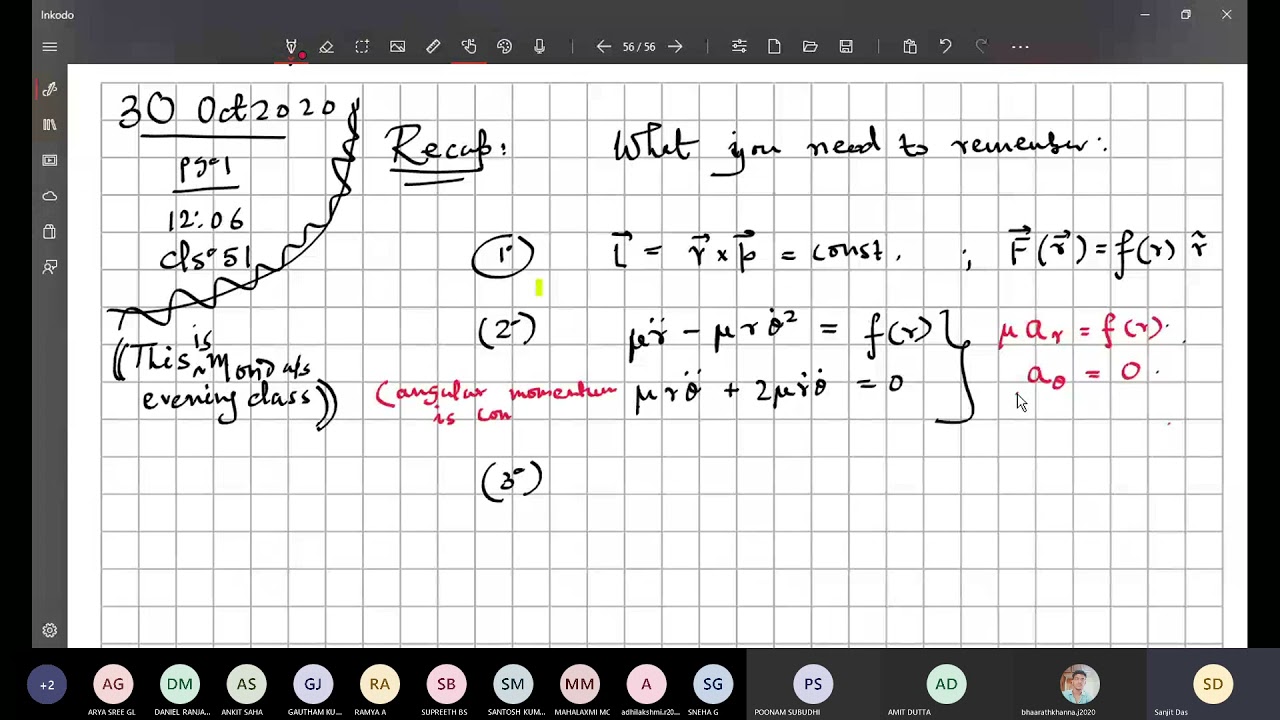 Inkodo
56 / 56
30 Oct 2020
pg-1
12:06
cls-51
((This is Monday's
evening class))
Recap:
What you need to remember:
(1)
L⃗ = r⃗ × p⃗ = const. ; F⃗(r⃗) = f(r) r̂
(2)
μr̈ − μrθ̇² = f(r)
μrθ̈ + 2μṙθ̇ = 0
μ a_r = f(r).
a_θ = 0.
(angular momentum
is con
(3)
+2
AG
DM
AS
GJ
RA
SB
SM
MM
A
SG
PS
AD
SD
ARYA SREE GL
DANIEL RANJA...
ANKIT SAHA
GAUTHAM KU...
RAMYA A
SUPREETH BS
SANTOSH KUM...
MAHALAXMI MC
adhilakshmi.r20...
SNEHA G
POONAM SUBUDHI
AMIT DUTTA
bhaarathkhanna.j2020
Sanjit Das